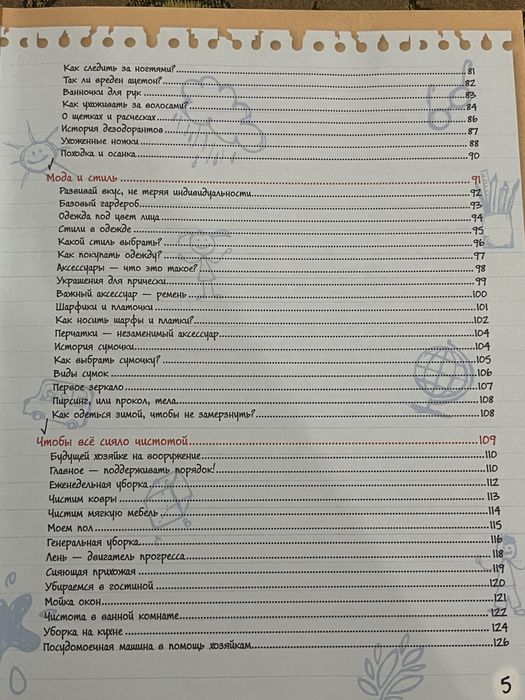 Как следить за ногтями? 81
Так ли вреден ацетон? 82
Ванночки для рук 83
Как ухаживать за волосами? 84
О щетках и расческах 86
История дезодорантов 87
Ухоженные ножки 88
Походка и осанка 90
Мода и стиль 91
Развивай вкус, не теряя индивидуальности 92
Базовый гардероб 93
Одежда под цвет лица 94
Стили в одежде 95
Какой стиль выбрать? 96
Как покупать одежду? 97
Аксессуары — что это такое? 98
Украшения для прически 99
Важный аксессуар — ремень 100
Шарфики и платочки 101
Как носить шарфы и платки? 102
Перчатки — незаменимый аксессуар 104
История сумочки 104
Как выбрать сумочку? 105
Виды сумок 106
Первое зеркало 107
Пирсинг, или прокол, тела 108
Как одеться зимой, чтобы не замерзнуть? 108
Чтобы всё сияло чистотой 109
Будущей хозяйке на вооружение 110
Главное — поддерживать порядок! 110
Еженедельная уборка 112
Чистим ковры 113
Чистим мягкую мебель 114
Моем пол 115
Генеральная уборка 116
Лень — двигатель прогресса 118
Сияющая прихожая 119
Убираемся в гостиной 120
Мойка окон 121
Чистота в ванной комнате 122
Уборка на кухне 124
Посудомоечная машина в помощь хозяйкам 126
5